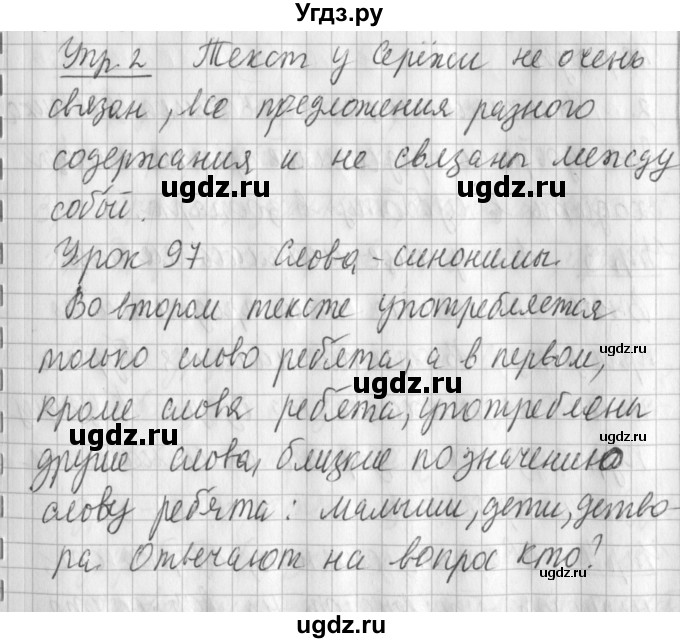 Угдз.ру
Упр. 2 Текст у Серёжи не очень
связан, все предложения разного
содержания и не связаны между
ugdz.ru ugdz.ru
собой.
Урок 97 Слова-синонимы.
Во втором тексте употребляется
только слово ребята, а в первом,
ugdz.ru
ugdz.ru
кроме слова ребята, употреблены
ugdz.ru
другие слова, близкие по значению
слову ребята: малыши, дети, детво-
ра. Отвечают на вопрос кто?
ugdz.ru
ugdz.ru